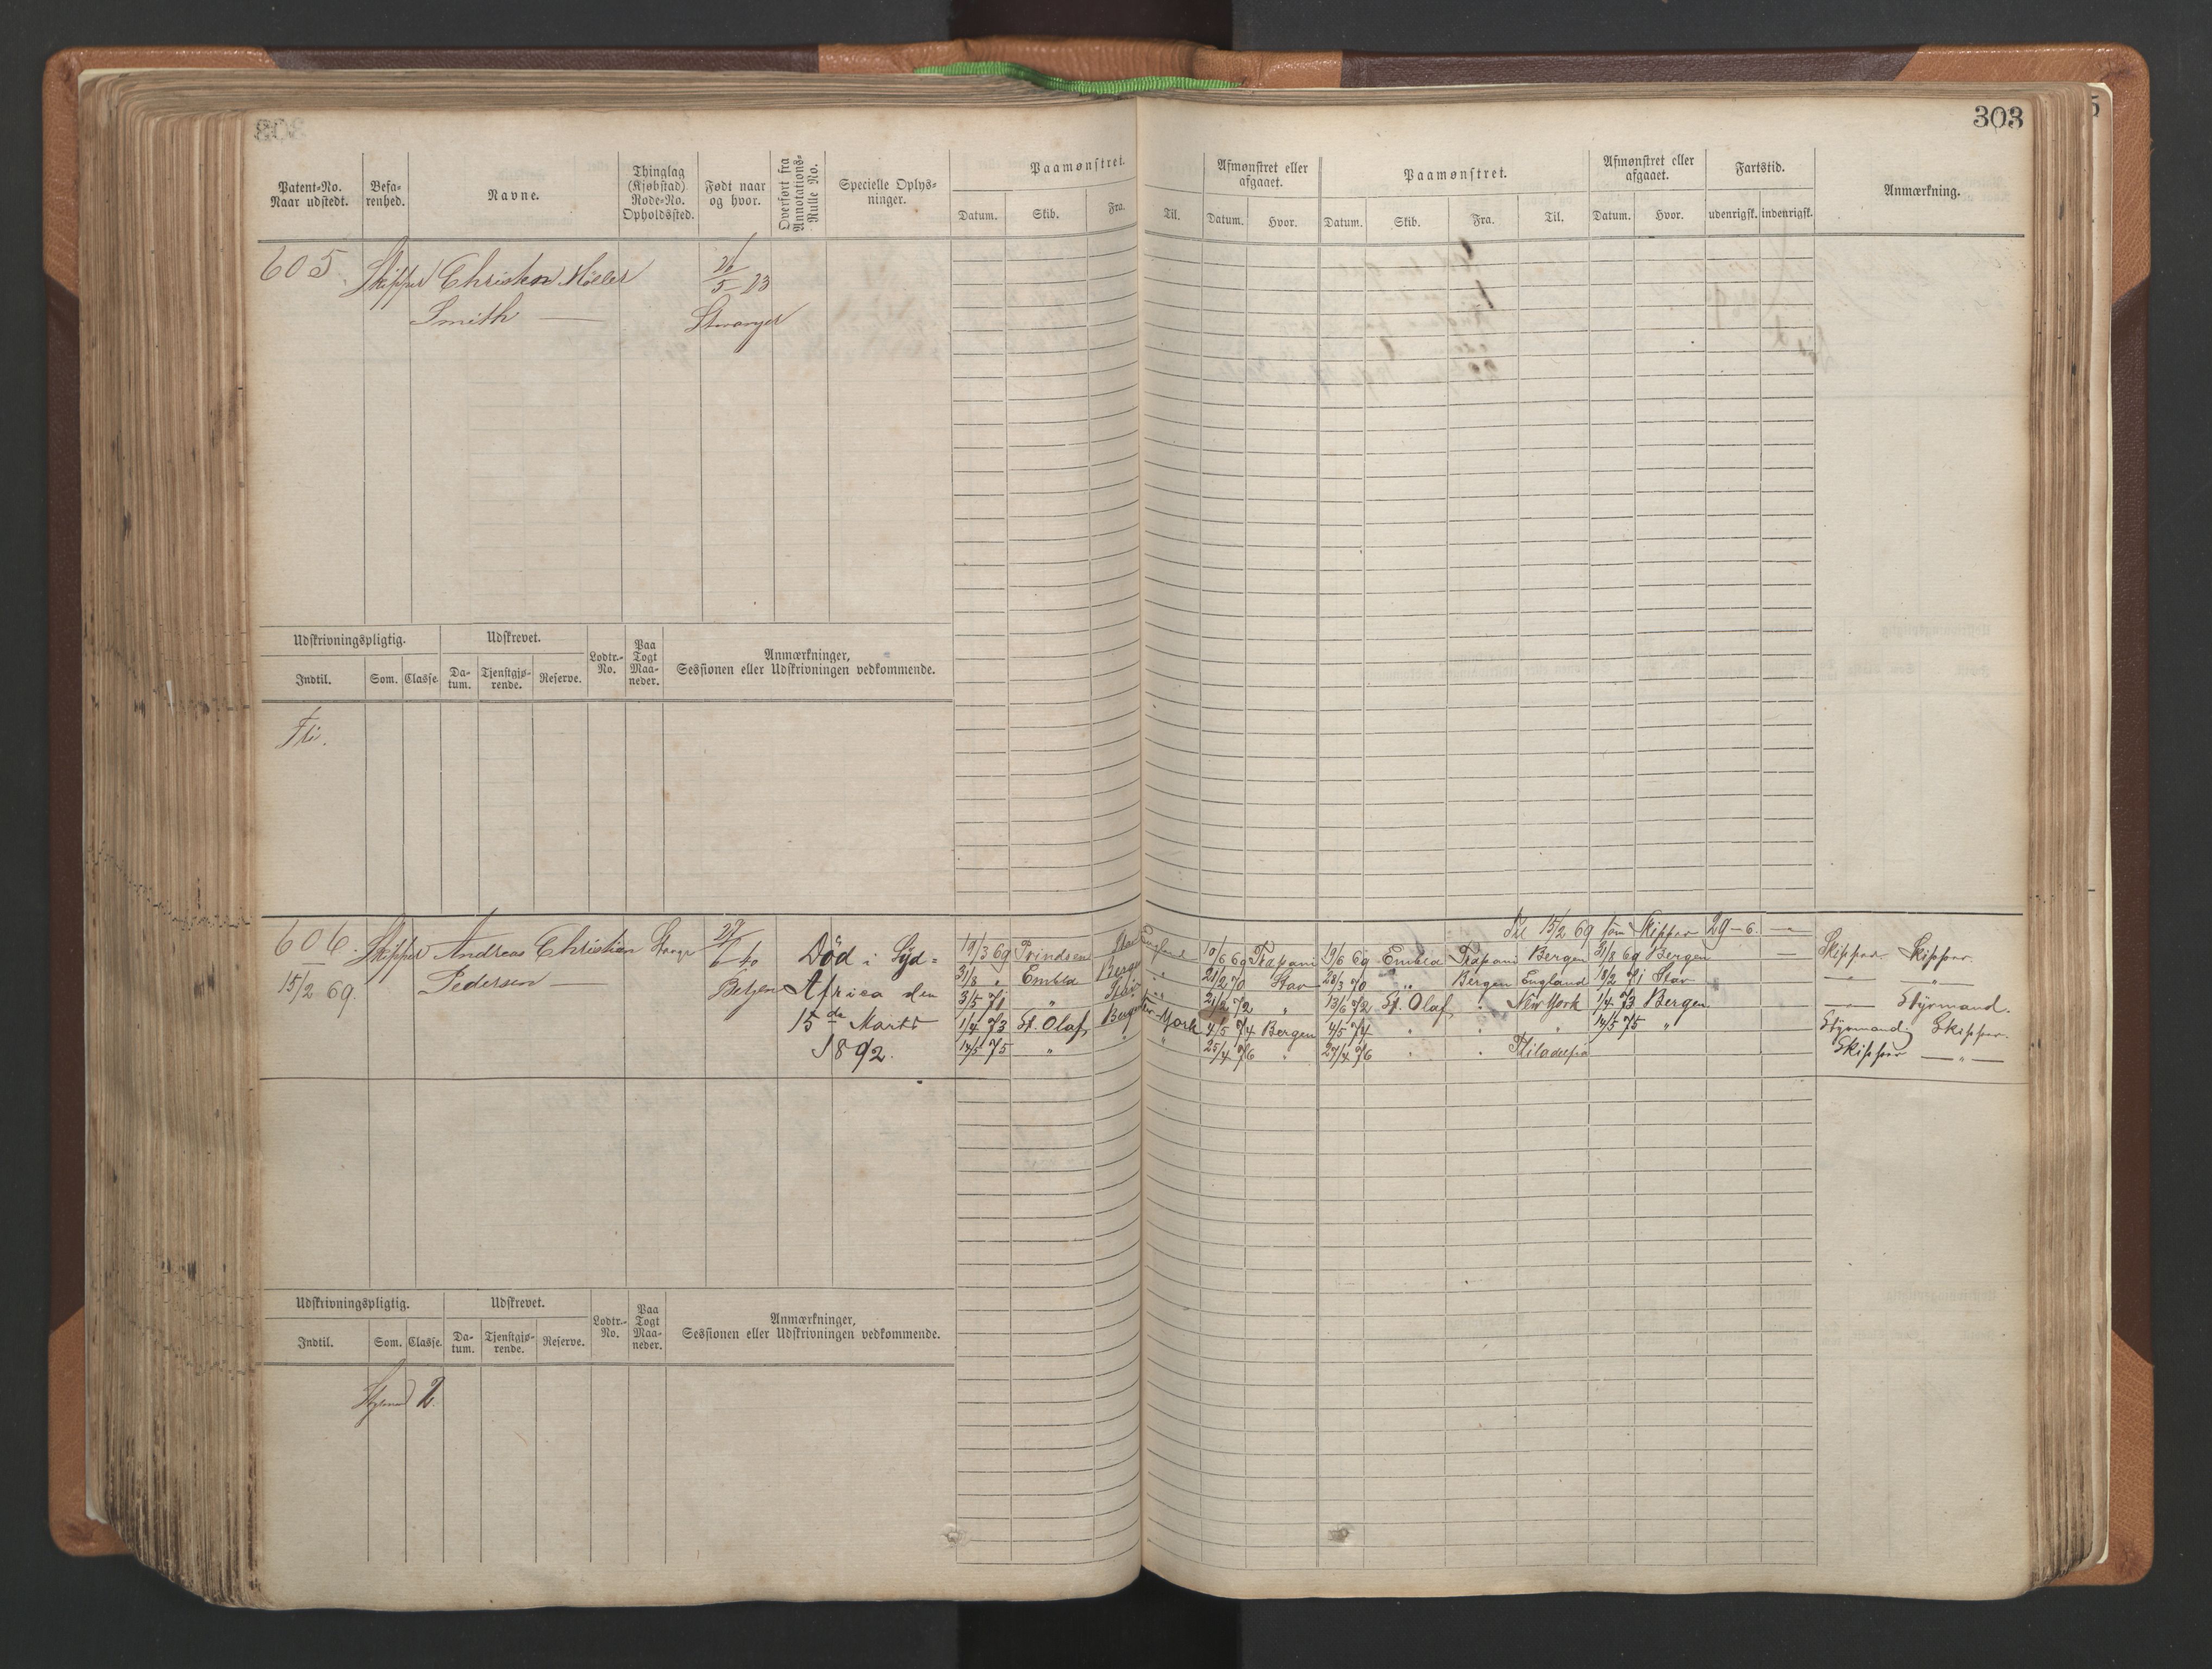 303
Patent-No. Naar udstedt. Befa-renhed. Navne. Thinglag (Kjøbstad) Rode-No. Opholdssted. Født naar og hvor. Overført fra Annotations-Rulle No. Specielle Oplys-ninger. Paamønstret. Afmønstret eller afgaaet. Paamønstret. Afmønstret eller afgaaet. Fartstid. Anmærkning.
Datum. Skib. Fra. Til. Datum. Hvor. Datum. Skib. Fra. Til. Datum. Hvor. udenrigsk. indenrigsk.
605 Skipper Christen Møller 5 23
Smith — Stavanger
Udskrivningspligtig. Udskrevet. Lodtr.-No. Paa Togt Maa-neder. Anmærkninger, Sessionen eller Udskrivningen vedkommende.
Indtil. Som. Classe. Da-tum. Tjenstgjø-rende. Reserve.
606. Skipper Andreas Christian 27/6 40 Død i Syd=
15/2 69. Pedersen — Bergen Africa den
15de Marts
1892.
Til 15/2 69 som Skipper 29-6. —
19/3 69 Prindsen Stav England 10/6 69 Trapani 19/6 69 Embla Trapani Bergen 31/8 69 Bergen — Skipper Skipper.
31/8 " Embla Bergen " 21/2 70 Stav 28/3 70 " Bergen England 18/2 71 Stav — "
3/5 71 " Stav " 21/2 72 " 13/6 72 St. Olaf " New York 1/4 73 Bergen — Styrmand.
1/4 73 St. Olaf Bergen New York 4/5 74 Bergen 4/5 74 " " " 14/5 75 " Styrmand. Skipper.
14/5 75 " " " 25/4 76 " 27/4 76 " " Skipper — " —
Udskrivningspligtig. Udskrevet. Lodtr.-No. Paa Togt Maa-neder. Anmærkninger, Sessionen eller Udskrivningen vedkommende.
Indtil. Som. Classe. Da-tum. Tjenstgjø-rende. Reserve.
2.